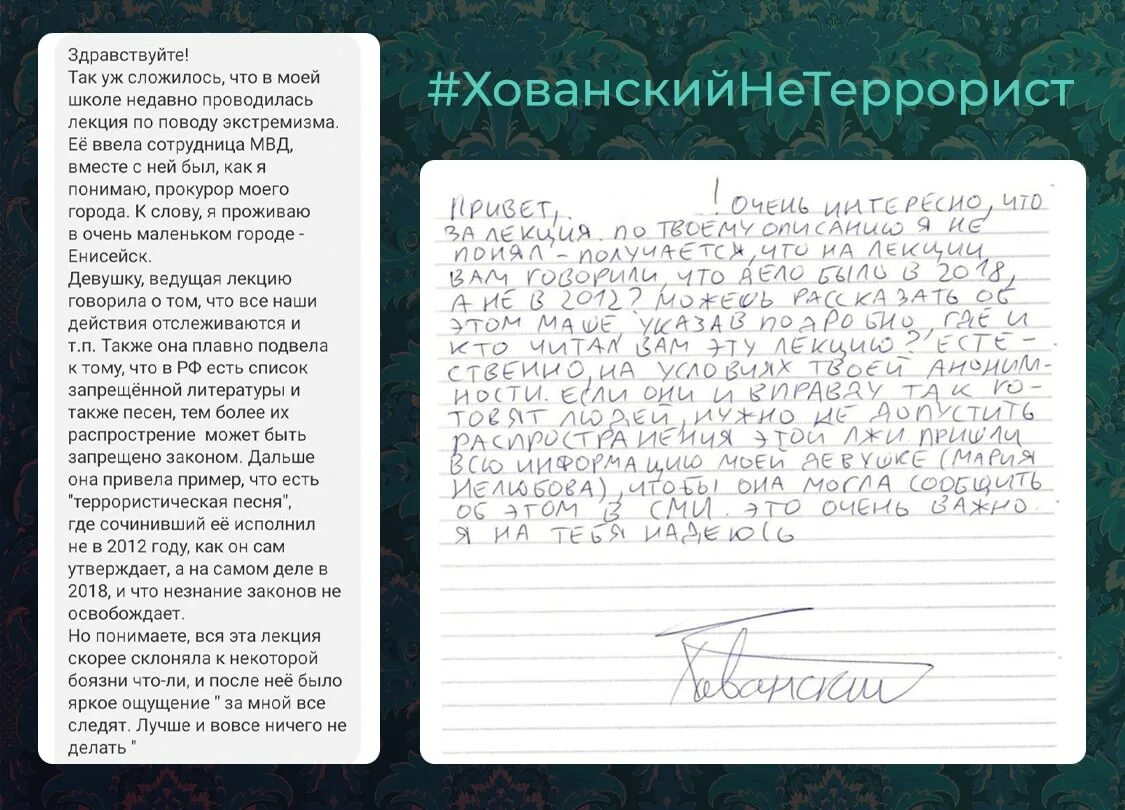 Здравствуйте!
Так уж сложилось, что в моей
школе недавно проводилась
лекция по поводу экстремизма.
Её ввела сотрудница МВД,
вместе с ней был, как я
понимаю, прокурор моего
города. К слову, я проживаю
в очень маленьком городе -
Енисейск.
Девушку, ведущая лекцию
говорила о том, что все наши
действия отслеживаются и
т.п. Также она плавно подвела
к тому, что в РФ есть список
запрещённой литературы и
также песен, тем более их
распрострение может быть
запрещено законом. Дальше
она привела пример, что есть
"террористическая песня",
где сочинивший её исполнил
не в 2012 году, как он сам
утверждает, а на самом деле в
2018, и что незнание законов не
освобождает.
Но понимаете, вся эта лекция
скорее склоняла к некоторой
боязни что-ли, и после неё было
яркое ощущение " за мной все
следят. Лучше и вовсе ничего не
делать "
#ХованскийНеТеррорист
ПРИВЕТ, ! ОЧЕНЬ ИНТЕРЕСНО, ЧТО
ЗА ЛЕКЦИЯ. ПО ТВОЕМУ ОПИСАНИЮ Я НЕ
ПОНЯЛ - ПОЛУЧАЕТСЯ, ЧТО НА ЛЕКЦИИ
ВАМ ГОВОРИЛИ, ЧТО ДЕЛО БЫЛО В 2018,
А НЕ В 2012? МОЖЕШЬ РАССКАЗАТЬ ОБ
ЭТОМ МАШЕ, УКАЗАВ ПОДРОБНО, ГДЕ И
КТО ЧИТАЛ ВАМ ЭТУ ЛЕКЦИЮ? ЕСТЕ-
СТВЕННО, НА УСЛОВИЯХ ТВОЕЙ АНОНИМ-
НОСТИ. ЕСЛИ ОНИ И ВПРАВДУ ТАК ГО-
ТОВЯТ ЛЮДЕЙ, НУЖНО НЕ ДОПУСТИТЬ
РАСПРОСТРАНЕНИЯ ЭТОЙ ЛЖИ. ПРИШЛИ
ВСЮ ИНФОРМАЦИЮ МОЕЙ ДЕВУШКЕ (МАРИЯ
НЕЛЮБОВА), ЧТОБЫ ОНА МОГЛА СООБЩИТЬ
ОБ ЭТОМ В СМИ. ЭТО ОЧЕНЬ ВАЖНО.
Я НА ТЕБЯ НАДЕЮСЬ
Хованский